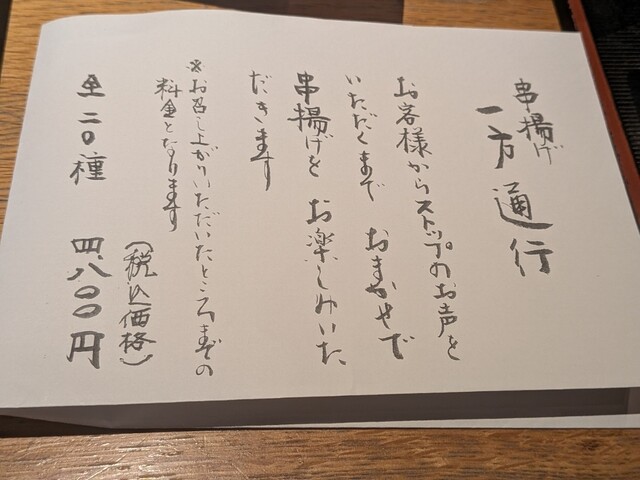 串揚げ
一方通行
お客様からストップのお声を
いただくまで おまかせで
串揚げを お楽しみいた
だきます
※お召し上がりいただいたところまでの
料金となります
全二〇種 四、八〇〇円
(税込価格)